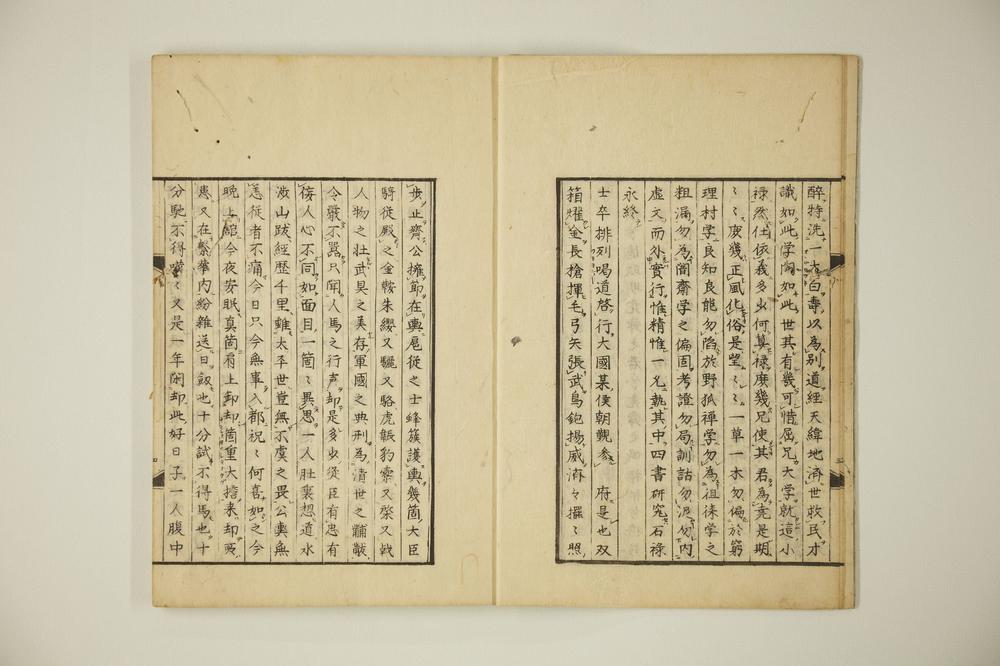 醉特洗一古白壽以為別道經天緯地濟世救民才
識如此学問如此世其有幾可惜屈兄大学就這小
祿然仕依義多少何算祿庶幾兄使其君為堯是期
〻〻庚幾正風化俗是望〻〻一草一木勿偏於窮
理村学良知良能勿陷於野狐禪学勿為徂徠学之
粗漏勿為闇齋学之偏固考證勿局訓詁勿泥勿内
虛文而外實行惟精惟一允執其中四書研究石祿
永終
士卒排列喝道啓行大國某侯朝覲参 府是也双
箱燿金長槍揮毛弓矢張武鳥銃揚威濟々攞〻照
步止齊公擁節在輿扈從之士蜂簇護輿幾箇大臣
騎從殿之金鞍朱纓又驪又駱虎韔豹橐又棨又戟
人物之壯武具之美存軍國之典刑為清世之黼黻
令嚴不囂只聞人馬之行声却是多少從臣有思有
倿人心不同如面目一箇〻異思一人肚裏想道水
涉山跋經歷千里雖太平世豈無不虞之畏公輿無
恙從者不痛今日只今無事入都祝〻何喜如之今
晩上館今夜安眠真箇肩上卸却箇重大擔来却㒵
患又在繫華内紛雜送日劔也十分試不得馬也十
分馳不得嘆〻又是一年閑却此好日子一人腹中